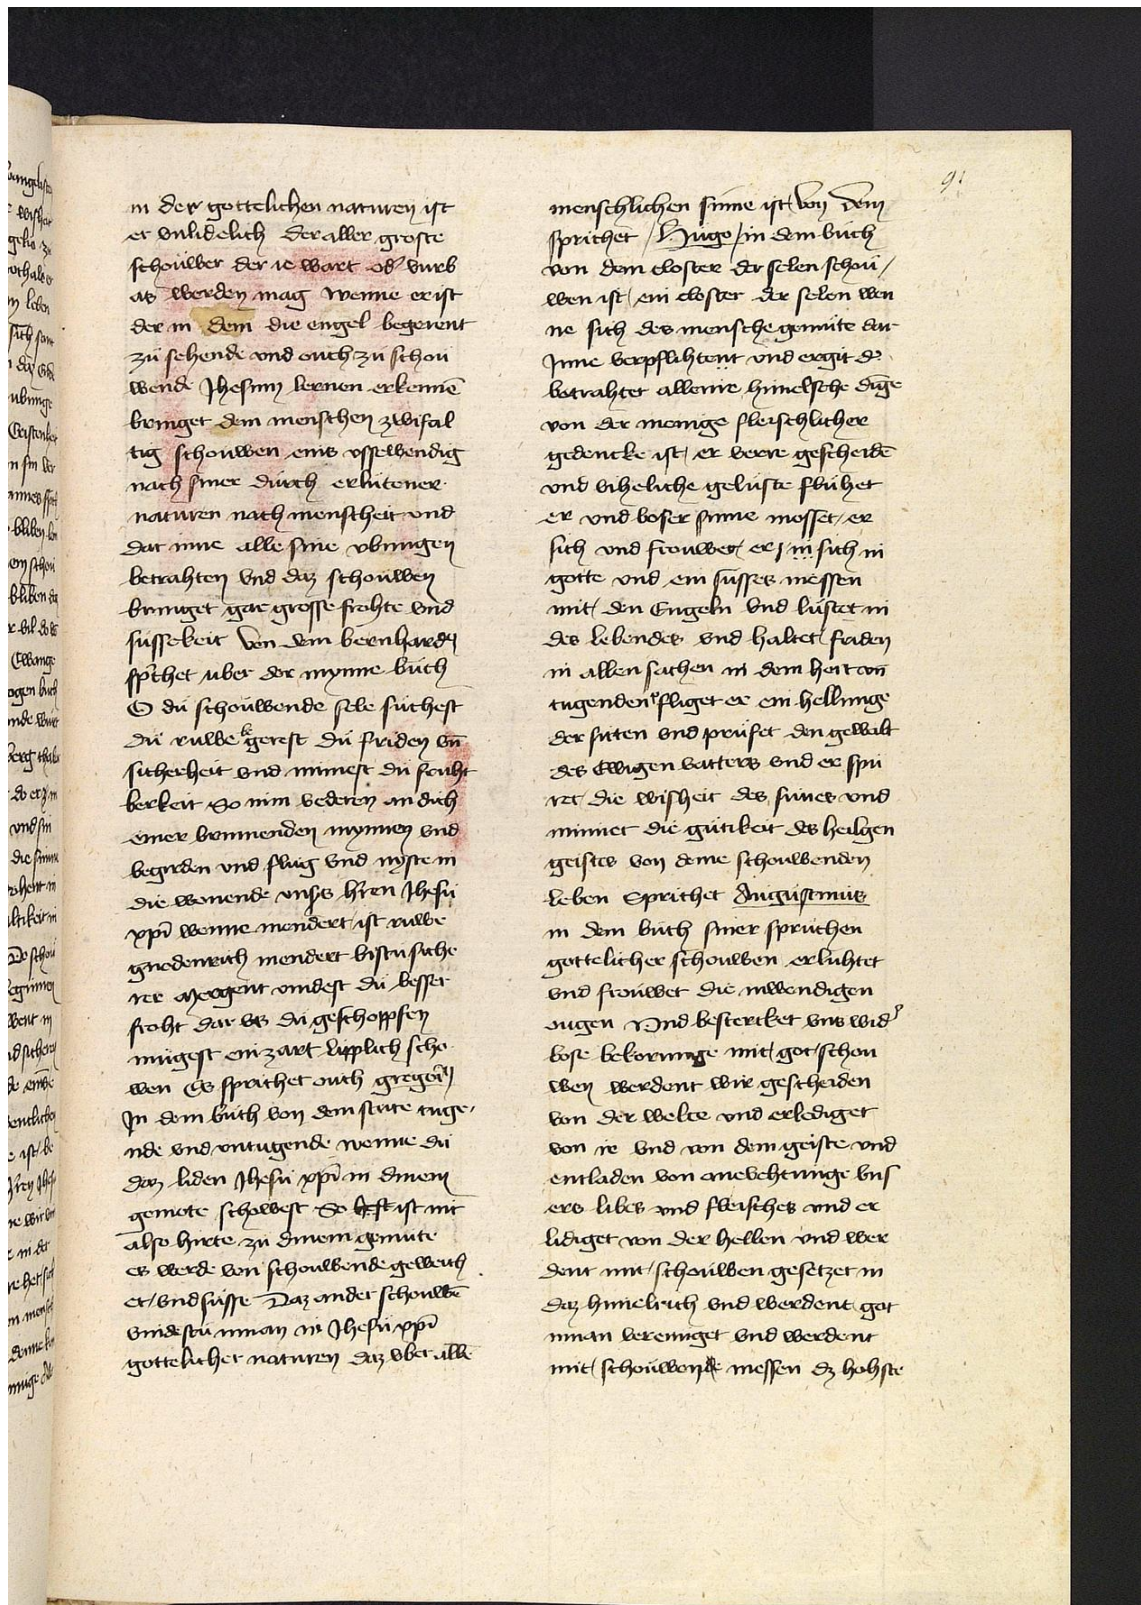 91
in der gottelichen naturen ist
er vnlidelich der aller groste
schoúwer der ie wart od' vurb
as werden mag wenne er ist
der in dem die engel begerent
zú sehende vnd ouch zú schoú
wende Jhesum lernen erkennē
bringet dem menschen zwifal
tig schoúwen eins vsswendig
nach siner dúrch erlútener
naturen nach menscheit vnd
dar inne alle sine vbungen
betrahten vnd daz schoúwen
bringet gar grosse frohte vnd
sússekeit von dem bernhardꝯ
sp'chet uber der mynne búch
O dú schoúwende sele súchest
dú ruwe kgerest dú friden vn̄
sicherheit vnd minnest dú fruht
berkeit So nim vederen an dich
einer brinnenden mynnen vnd
begirden vnd flúg vnd nyste in
die wonende vnsers h'ren Jhesú
xp̄i wenne niendert ist ruwe
gnedenrich niendert bistu siche
rer niergent vindest dú besser
froht dar vs dú geschoppfen
múgest ein zart lipplich scho
wen Es sprichet ouch gregoriꝯ
Jn dem búch von dem strite tuge
nde vnd vntugende wenne dú
daz liden Jhesú xp̄i in dinem
gemote schowest So ist nit
also hirte zú dinem gemúte
es werde von schoúwende geweich
et vnd sússe Daz ander schoúwē
vindestú inman in Jhesú xp̄i
gottelicher naturen daz vber alle
menschlichen sinne ist von dem
sprichet Húgo in dem búch
von dem closter der selen schoú
wen ist ein closter der selen wen
ne sich des mensche gemúte dar
Jnne verpflihtent vnd ergit d'
betrahtet alleine himelsche dīge
von der menige fleischlicher
gedencke ist er verre gescheidē
vnd viheliche gelúste flúhet
er vnd boser sinne messet er
sich vnd froúwet er in sich in
gotte vnd ein sússes niessen
mit den Engeln vnd lústet in
des lebendes vnd haltet friden
in allen sachen in dem hort von
tugenden fliget er ein hellunge
der sitten vnd prúfet den gewalt
des Ewigen vatters vnd er spú
ret die wisheit des súnes vnd
minnet die gútikeit des heilgen
geistes von deme schoúwenden
leben Sprichet Augustinus
in dem búch siner sprúchen
gottelicher schoúwen erlúhtet
vnd froúwet die inwendigen
ougen Vnd bestercket vns wid'
bose bekorunge mit got schou
wen werdent wir gescheiden
von der welte vnd erlediget
von ir vnd von dem geiste vnd
entladen von anevehtunge vns
ers libes vnd fleisches vnd er
lidiget von der hellen vnd wer
dent mit schoúwen gesetzet in
daz himelrich vnd werdent got
inman vereiniget vnd werdent
mit schoúwende niessen dz hohste